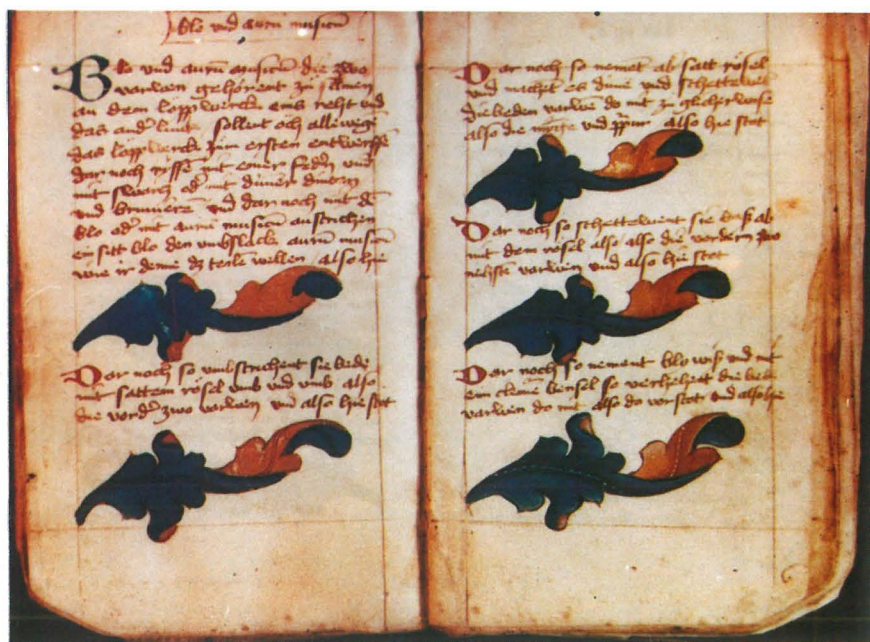 blo vnd aurū musicū
Blo vnd aurū musicū die zwo
varwen gehörent zů sāmen
an dem loppwerck eins reht vnd
das and' linck sollent och allewege
das löppwerck zům ersten entwerffē
dar noch rissē mit einer fed'n vnd
mit swartz od' mit dūner dinten
vnd dar noch mit dē
blo od' mit aurū musicū anstrichen
ein sitt blo den vmbslack aurū musicū
wie ir denne dz teile wellen also hie
Dar noch so vmbstrichent sie bede
mit sattem rösel vmb vnd vmb also
die vord'n zwo varwen vnd also hie stot
Dar noch so nement ab satt rösel
vnd machet es dūne vnd schettewent
die beden varwe do mit zů glicherwise
also die vnd also hie stot
Dar noch so schettewent sie baß ab
mit dem rösel also also die vordern zwo
varwen vnd also hie stot
Dar noch so nement blo wiß vnd mit
eim cleinē bensel so verhehent die bedē
varwen do mit also do vor stot vnd also hie